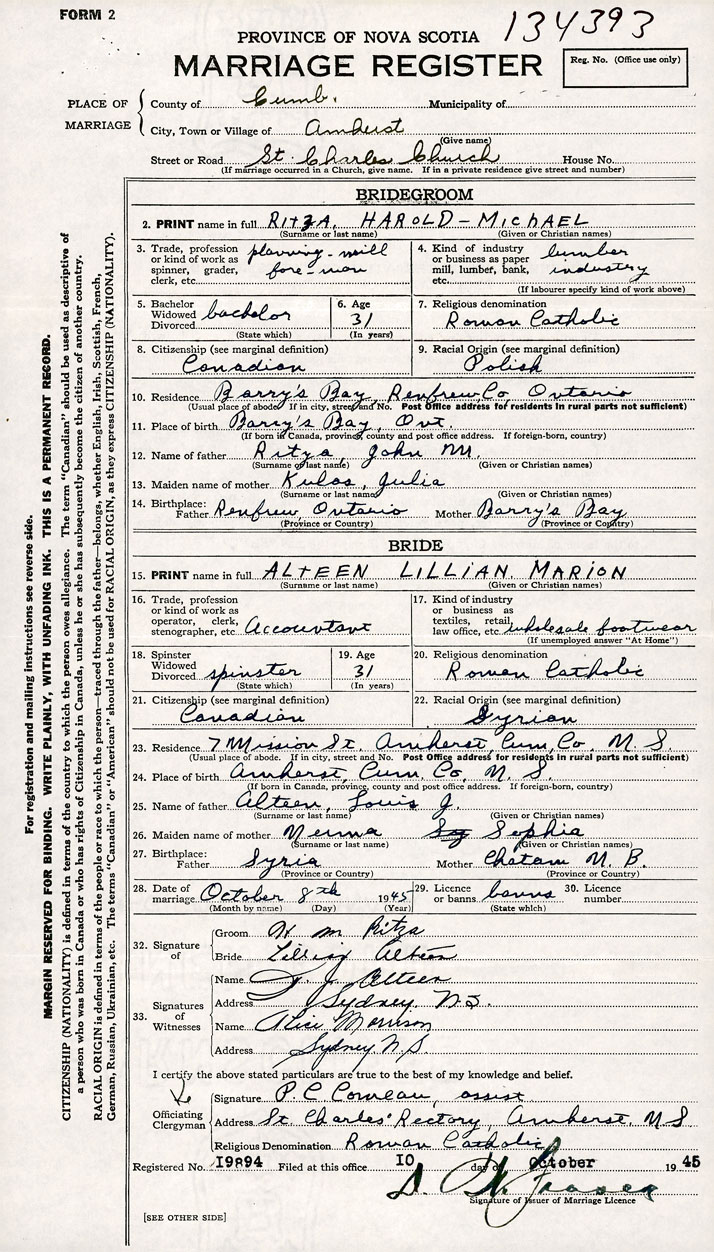 FORM 2
134393
PROVINCE OF NOVA SCOTIA
MARRIAGE REGISTER
Reg. No. (Office use only)
PLACE OF MARRIAGE
County of Cumb. Municipality of
City, Town or Village of Amherst
(Give name)
Street or Road St. Charles Church House No.
(If marriage occurred in a Church, give name. If in a private residence give street and number)
BRIDEGROOM
2. PRINT name in full RITZA, HAROLD - MICHAEL
(Surname or last name) (Given or Christian names)
3. Trade, profession or kind of work as spinner, grader, clerk, etc. planning-mill fore-man
4. Kind of industry or business as paper mill, lumber, bank, etc. lumber industry
(If labourer specify kind of work above)
5. Bachelor Widowed Divorced bachelor
(State which)
6. Age 31
(In years)
7. Religious denomination
Roman Catholic
8. Citizenship (see marginal definition)
Canadian
9. Racial Origin (see marginal definition)
Polish
10. Residence Barry's Bay, Renfrew Co, Ontario
(Usual place of abode. If in city, street and No. Post Office address for residents in rural parts not sufficient)
11. Place of birth Barry's Bay, Ont.
(If born in Canada, province, county and post office address. If foreign-born, country)
12. Name of father Ritza, John M.
(Surname or last name) (Given or Christian names)
13. Maiden name of mother Kulas, Julia
(Surname or last name) (Given or Christian names)
14. Birthplace: Father Renfrew, Ontario Mother Barry's Bay
(Province or Country) (Province or Country)
BRIDE
15. PRINT name in full ALTEEN LILLIAN. MARION
(Surname or last name) (Given or Christian names)
16. Trade, profession or kind of work as operator, clerk, stenographer, etc. Accountant
17. Kind of industry or business as textiles, retail, law office, etc. wholesale footwear
(If unemployed answer "At Home")
18. Spinster Widowed Divorced spinster
(State which)
19. Age 31
(In years)
20. Religious denomination
Roman Catholic
21. Citizenship (see marginal definition)
Canadian
22. Racial Origin (see marginal definition)
Syrian
23. Residence 7 Mission St. Amherst, Cum. Co, N. S.
(Usual place of abode. If in city, street and No. Post Office address for residents in rural parts not sufficient)
24. Place of birth Amherst, Cum. Co, N. S.
(If born in Canada, province, county and post office address. If foreign-born, country)
25. Name of father Alteen, Louis J.
(Surname or last name) (Given or Christian names)
26. Maiden name of mother Nerma Sophia
(Surname or last name) (Given or Christian names)
27. Birthplace: Father Syria Mother Chatam N. B.
(Province or Country) (Province or Country)
28. Date of marriage October 8th 1945
(Month by name) (Day) (Year)
29. Licence or banns banns
(State which)
30. Licence number
32. Signature of
Groom H M Ritza
Bride Lillian Alteen
33. Signatures of Witnesses
Name J. Alteen
Address Sydney N.S.
Name Alice Morrison
Address Sydney N.S.
I certify the above stated particulars are true to the best of my knowledge and belief.
Officiating Clergyman
Signature P. C. Comeau, assist
Address St Charles' Rectory, Amherst, N S
Religious Denomination Roman Catholic
Registered No. 19894 Filed at this office 10 day of October 1945
Signature of Issuer of Marriage Licence
[SEE OTHER SIDE]
For registration and mailing instructions see reverse side.
MARGIN RESERVED FOR BINDING. WRITE PLAINLY, WITH UNFADING INK. THIS IS A PERMANENT RECORD.
CITIZENSHIP (NATIONALITY) is defined in terms of the country to which the person owes allegiance. The term "Canadian" should be used as descriptive of
a person who was born in Canada or who has rights of Citizenship in Canada, unless he or she has subsequently become the citizen of another country.
RACIAL ORIGIN is defined in terms of the people or race to which the person—traced through the father—belongs, whether English, Irish, Scottish, French,
German, Russian, Ukrainian, etc. The terms "Canadian" or "American" should not be used for RACIAL ORIGIN, as they express CITIZENSHIP (NATIONALITY).